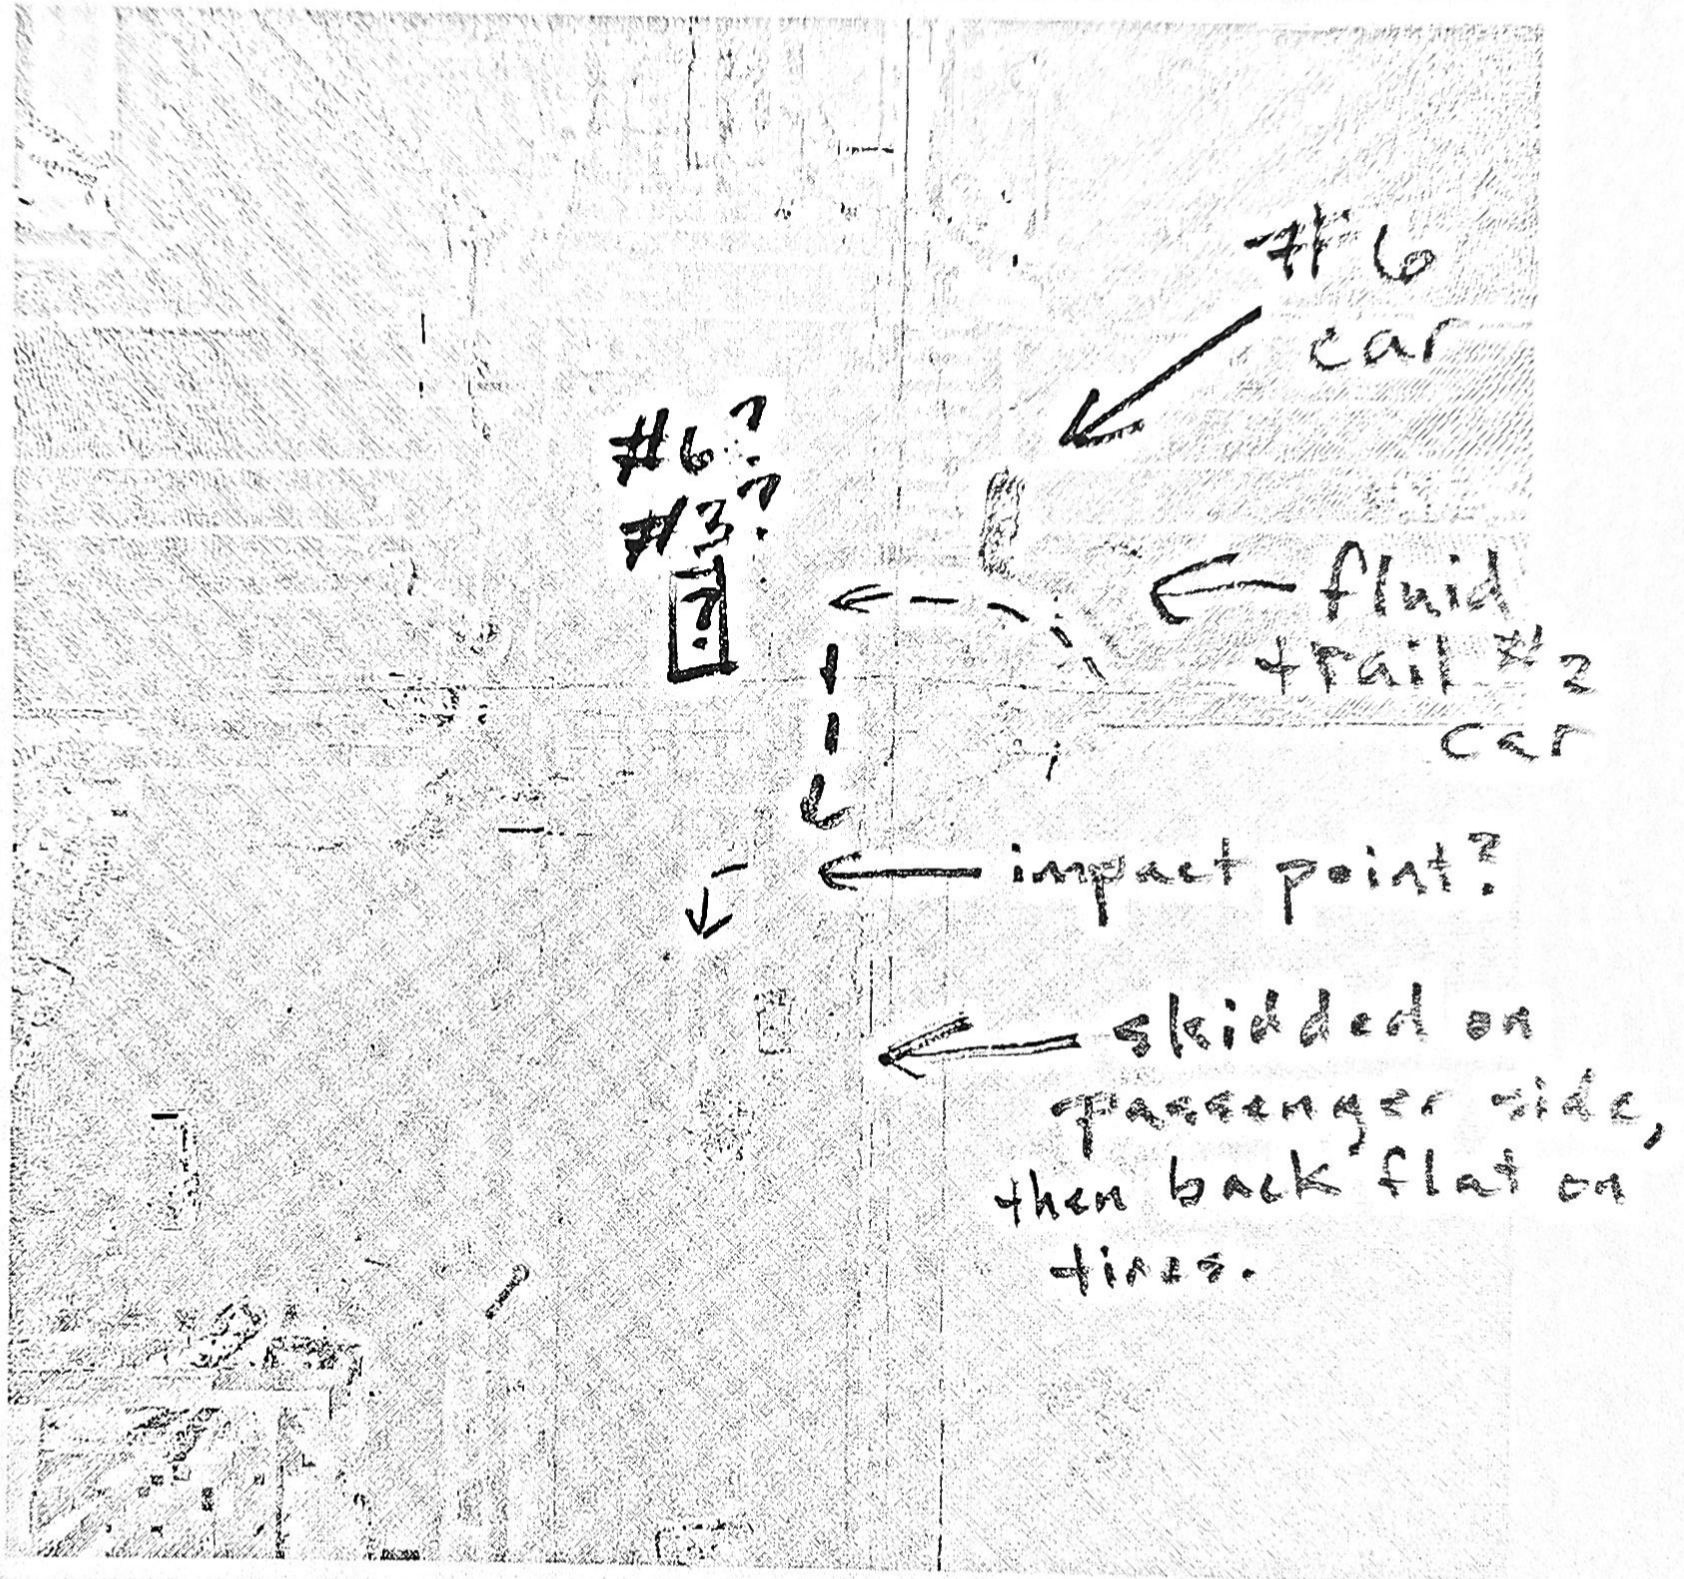 #6
car
#6?
#3?
?
fluid
trail #2
car
impact point?
skidded on
passenger side,
then back flat on
tires.